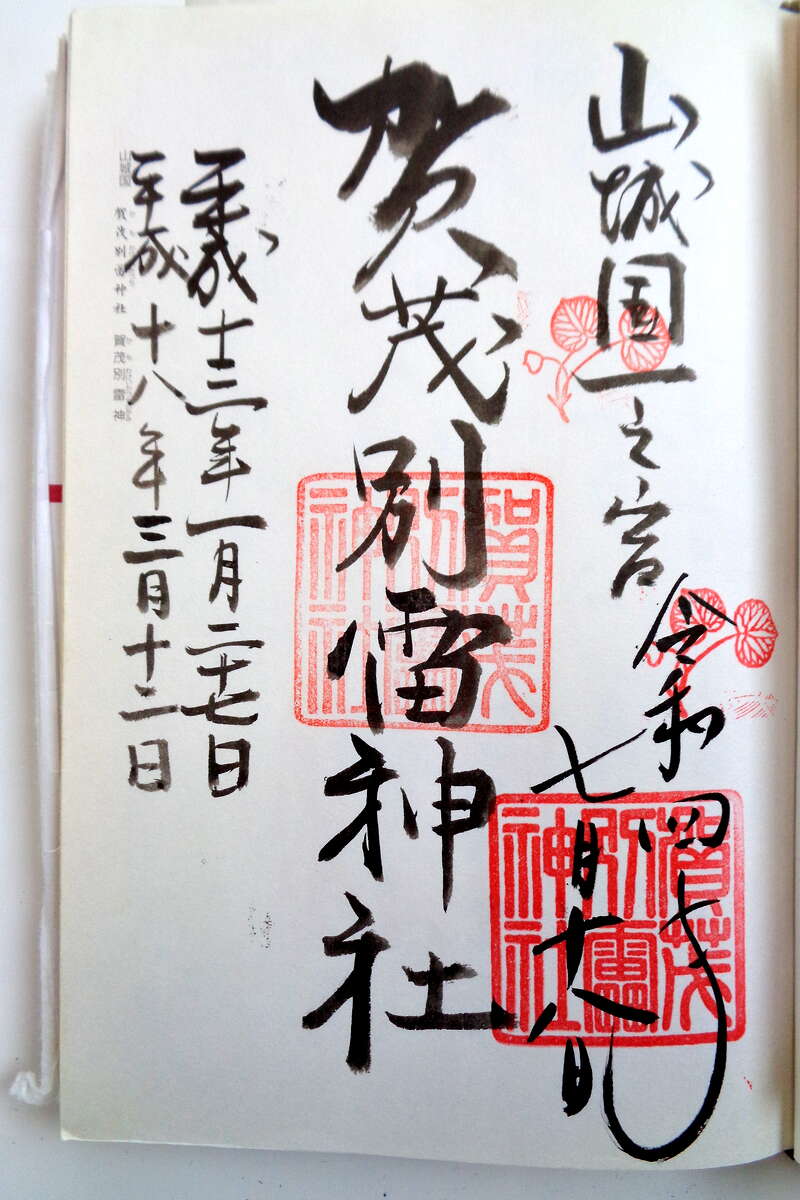 山城国一之宮
令和四年
七月十八日
賀茂別雷神社
賀茂
別雷
神社
賀茂
別雷
神社
平成十三年一月二十七日
平成十八年三月十二日
山城国 賀茂別雷神社 賀茂別雷神